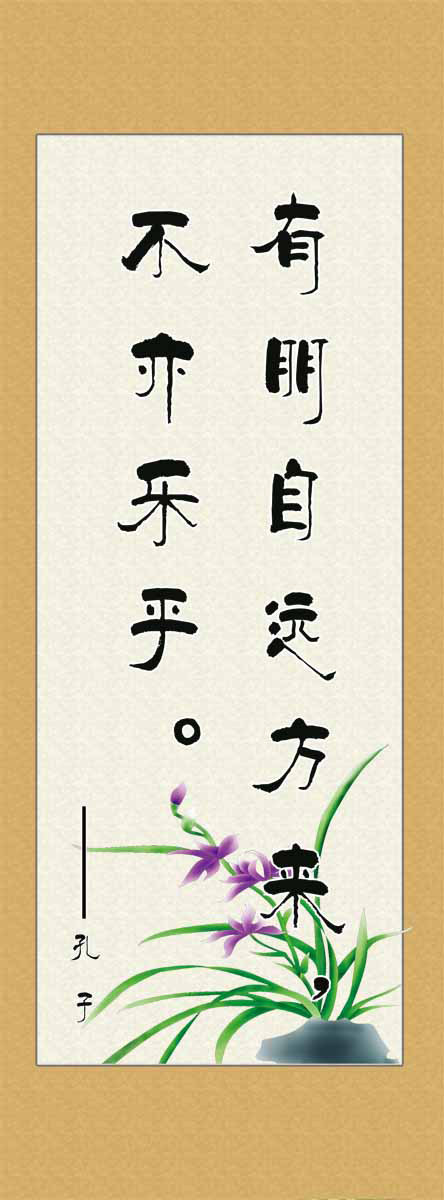 有朋自远方来，
不亦乐乎。
——孔子